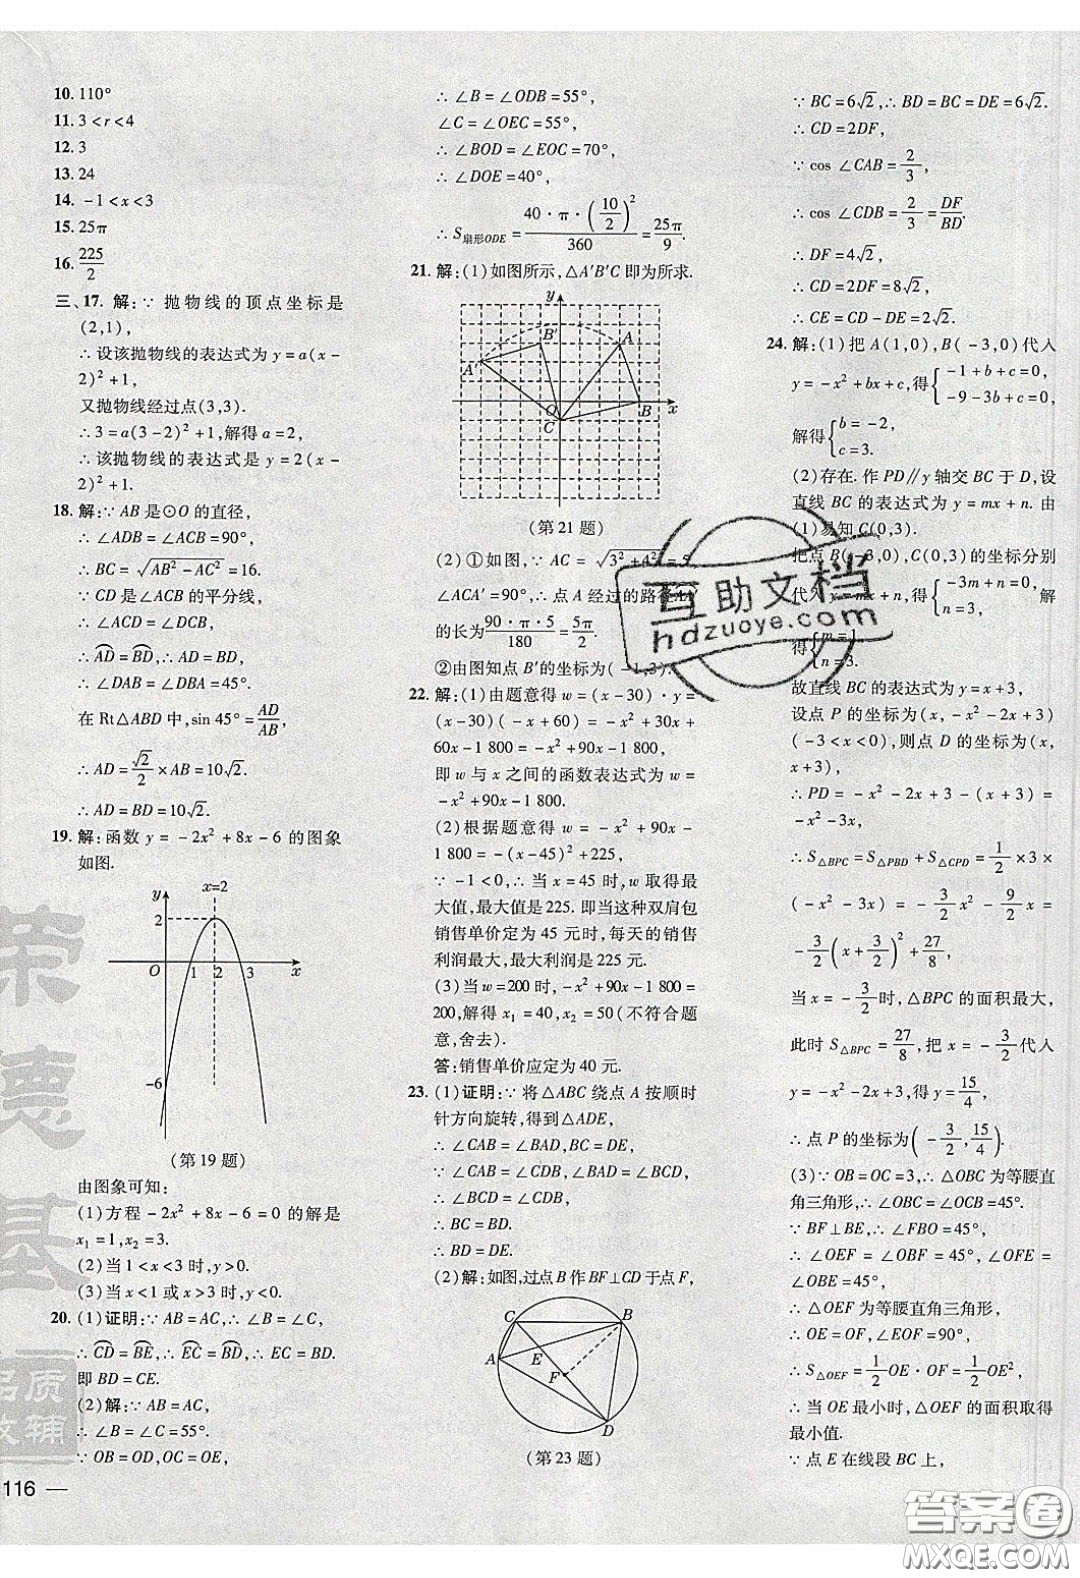 10. 110°
11. 3<r<4
12. 3
13. 24
14. -1<x<3
15. 25π
16. 225/2
三、17. 解:∵ 抛物线的顶点坐标是
(2,1),
∴ 设该抛物线的表达式为 y=a(x-
2)²+1,
又抛物线经过点(3,3).
∴3=a(3-2)²+1,解得 a=2,
∴该抛物线的表达式是 y=2(x-
2)²+1.
18. 解:∵AB 是⊙O 的直径,
∴ ∠ADB=∠ACB=90°,
∴ BC=√(AB²-AC²)=16.
∵ CD 是∠ACB 的平分线,
∴ ∠ACD=∠DCB,
∴ A͡D=B͡D,∴AD=BD,
∴ ∠DAB=∠DBA=45°.
在 Rt△ABD 中,sin 45°=AD/AB,
∴ AD=√2/2×AB=10√2.
∴ AD=BD=10√2.
19. 解:函数 y=-2x²+8x-6 的图象
如图.
y
x=2
2
O 1 2 3 x
-6
(第 19 题)
由图象可知:
(1)方程-2x²+8x-6=0 的解是
x₁=1,x₂=3.
(2)当 1<x<3 时,y>0.
(3)当 x<1 或 x>3 时,y<0.
20. (1)证明:∵AB=AC,∴∠B=∠C,
∴ C͡D=B͡E,∴ E͡C=B͡D,∴ BD=EC.
即 BD=CE.
(2)解:∵AB=AC,
∴ ∠B=∠C=55°,
∵ OB=OD,OC=OE,
116
∴ ∠B=∠ODB=55°,
∠C=∠OEC=55°,
∴ ∠BOD=∠EOC=70°,
∴ ∠DOE=40°,
∴ S扇形ODE=40·π·(10/2)²/360=25π/9.
21. 解:(1)如图所示,△A′B′C 即为所求.
y
B′ A
A′
O B x
C
(第 21 题)
(2)①如图,∵ AC=√(3²+4²)=5
∠ACA′=90°,∴ 点 A 经过的路径
的长为90·π·5/180=5π/2
②由图知点 B′的坐标为(-1,3).
22. 解:(1)由题意得 w=(x-30)·y=
(x-30)(-x+60)=-x²+30x+
60x-1 800=-x²+90x-1 800,
即 w 与 x 之间的函数表达式为 w=
-x²+90x-1 800.
(2)根据题意得 w=-x²+90x-
1 800=-(x-45)²+225,
∵ -1<0,∴ 当 x=45 时,w 取得最
大值,最大值是 225. 即当这种双肩包
销售单价定为 45 元时,每天的销售
利润最大,最大利润是 225 元.
(3)当 w=200 时,-x²+90x-1 800=
200,解得 x₁=40,x₂=50(不符合题
意,舍去).
答:销售单价应定为 40 元.
23. (1)证明:∵ 将△ABC 绕点 A 按顺时
针方向旋转,得到△ADE,
∴ ∠CAB=∠BAD,BC=DE,
∵ ∠CAB=∠CDB,∠BAD=∠BCD,
∴ ∠BCD=∠CDB,
∴ BC=BD.
∴ DE=BD.
(2)解:如图,过点 B 作 BF⊥CD 于点 F,
C B
A E
F
D
(第 23 题)
∵ BC=6√2,∴ BD=BC=DE=6√2.
∴ CD=2DF,
∵ cos ∠CAB=2/3,
∴ cos ∠CDB=2/3=DF/BD.
∴ DF=4√2,
∴ CD=2DF=8√2,
∴ CE=CD-DE=2√2.
24. 解:(1)把 A(1,0),B(-3,0)代入
y=-x²+bx+c,得{-1+b+c=0,
-9-3b+c=0,
解得{b=-2,
c=3.
(2)存在. 作 PD∥y 轴交 BC 于 D,设
直线 BC 的表达式为 y=mx+n. 由
(1)易知 C(0,3).
把点 B(-3,0),C(0,3)的坐标分别
代入 得{-3m+n=0, 解
n=3,
得{m=1
n=3.
故直线 BC 的表达式为 y=x+3,
设点 P 的坐标为(x,-x²-2x+3)
(-3<x<0),则点 D 的坐标为(x,
x+3),
∴ PD=-x²-2x+3-(x+3)=
-x²-3x,
∴ S△BPC=S△PBD+S△CPD=1/2×3×
(-x²-3x)=-3/2x²-9/2x=
-3/2(x+3/2)²+27/8,
当 x=-3/2时,△BPC 的面积最大,
此时 S△BPC=27/8,把 x=-3/2代入
y=-x²-2x+3,得 y=15/4,
∴ 点 P 的坐标为(-3/2,15/4).
(3)∵ OB=OC=3,∴ △OBC 为等腰直
角三角形,∴ ∠OBC=∠OCB=45°.
∵ BF⊥BE,∴ ∠FBO=45°,
∴ ∠OEF=∠OBF=45°,∠OFE=
∠OBE=45°,
∴ △OEF 为等腰直角三角形,
∴ OE=OF,∠FOE=90°,
∴S△OEF=1/2OE·OF=1/2OE².
∴ 当 OE 最小时,△OEF 的面积取得
最小值.
∵ 点 E 在线段 BC 上,
互助文档
hdzuoye.com
荣德基
品质
教辅
答案圈
MXQE.COM